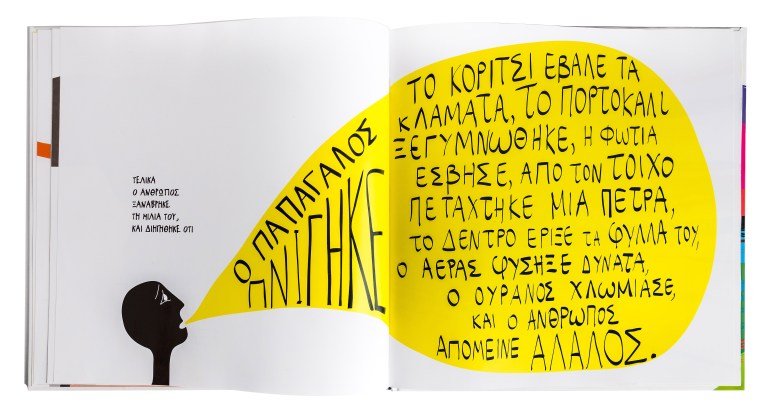 ΤΕΛΙΚΑ
Ο ΑΝΘΡΩΠΟΣ
ΞΑΝΑΒΡΗΚΕ
ΤΗ ΜΙΛΙΑ ΤΟΥ,
ΚΑΙ ΔΙΗΓΗΘΗΚΕ ΟΤΙ
Ο ΠΑΠΑΓΑΛΟΣ
ΠΝΙΓΗΚΕ
ΤΟ ΚΟΡΙΤΣΙ ΕΒΑΛΕ ΤΑ
ΚΛΑΜΑΤΑ, ΤΟ ΠΟΡΤΟΚΑΛΙ
ΞΕΓΥΜΝΩΘΗΚΕ, Η ΦΩΤΙΑ
ΕΣΒΗΣΕ, ΑΠΟ ΤΟΝ ΤΟΙΧΟ
ΠΕΤΑΧΤΗΚΕ ΜΙΑ ΠΕΤΡΑ,
ΤΟ ΔΕΝΤΡΟ ΕΡΙΞΕ ΤΑ ΦΥΛΛΑ ΤΟΥ,
Ο ΑΕΡΑΣ ΦΥΣΗΞΕ ΔΥΝΑΤΑ,
Ο ΟΥΡΑΝΟΣ ΧΛΩΜΙΑΣΕ,
ΚΑΙ Ο ΑΝΘΡΩΠΟΣ
ΑΠΟΜΕΙΝΕ ΑΛΑΛΟΣ.